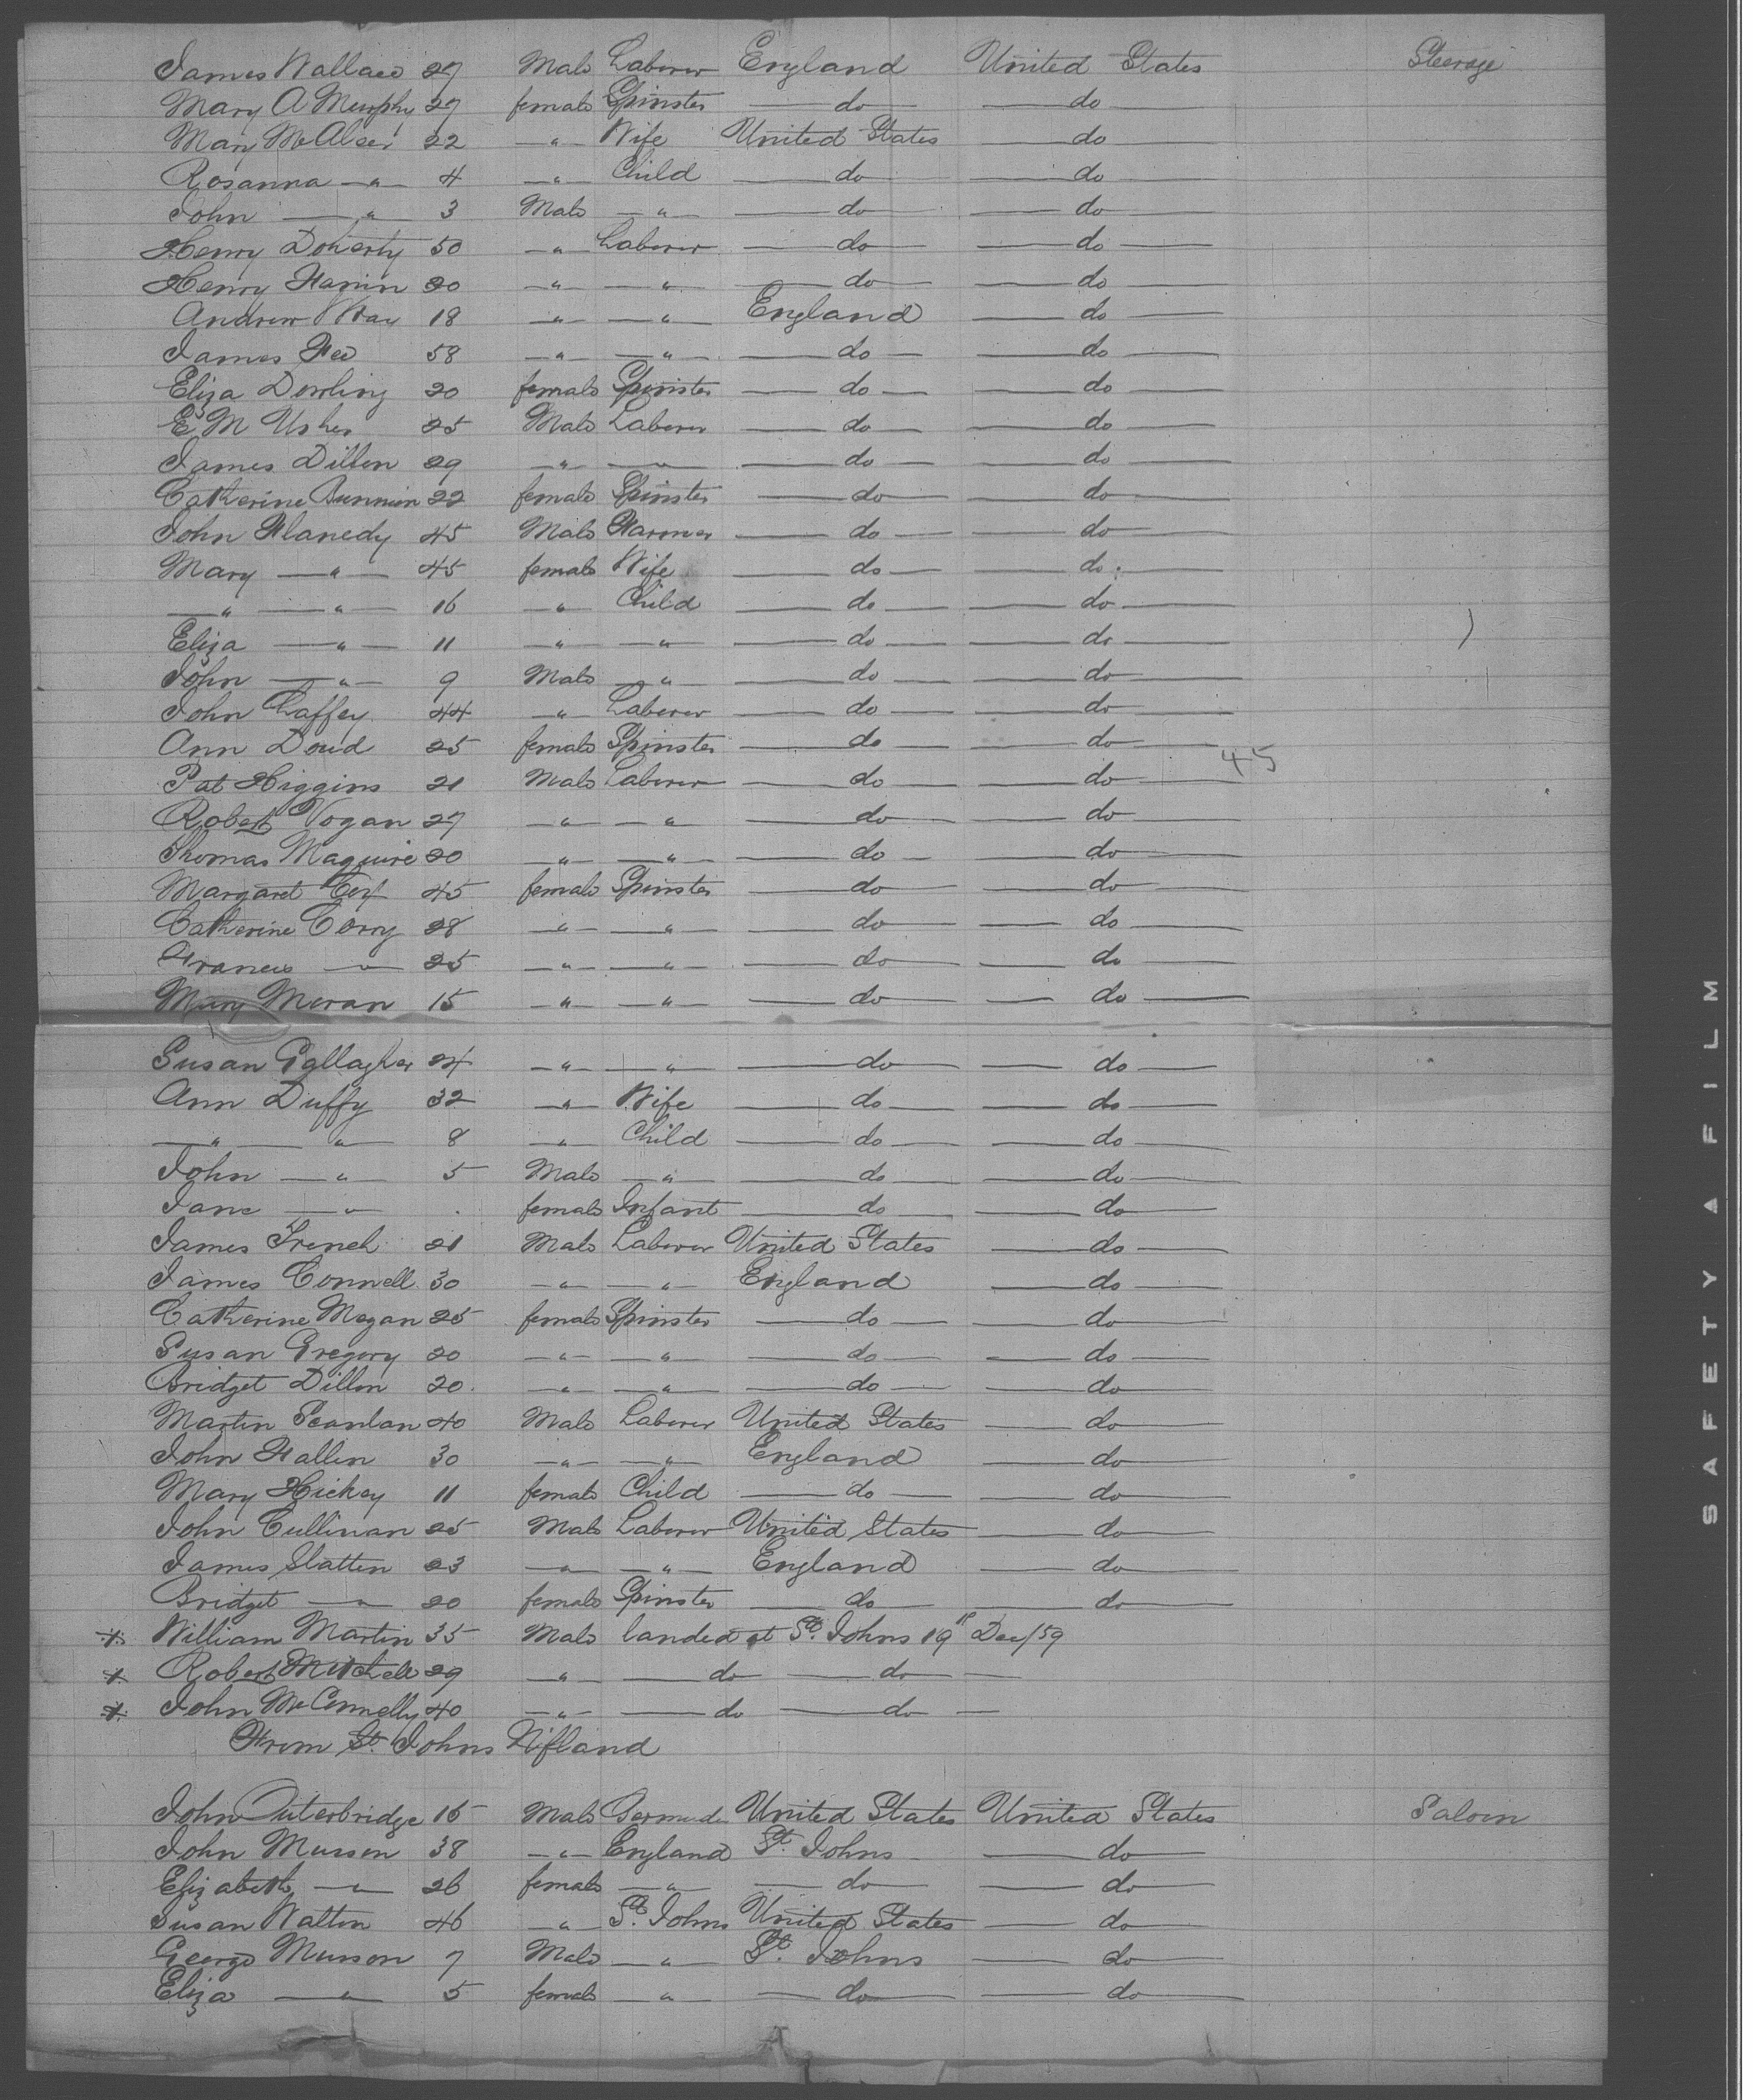 James Wallace 27 Male Laborer England United States Steerage
Mary A Murphy 27 female Spinster — do — — do —
Mary McAleer 22 — " — Wife United States — do —
Rosanna — " — 4 — " — Child — do — — do —
John — " — 3 Male — " — — do — — do —
Henry Doherty 50 — " — Laborer — do — — do —
Henry Fanin 20 — " — — " — — do — — do —
Andrew 18 — " — — " — England — do —
James Fee 58 — " — — " — — do — — do —
Eliza Dowling 20 female Spinster — do — — do —
E M Usher 25 Male Laborer — do — — do —
James Dillon 29 — " — — " — — do — — do —
Catherine 22 female Spinster — do — — do —
John Flanedy 45 Male Farmer — do — — do —
Mary — " — 45 female Wife — do — — do —
— " — — " — 16 — " — Child — do — — do —
Eliza — " — 11 — " — — " — — do — — do —
John — " — 9 Male — " — — do — — do —
John Laffey 44 — " — Laborer — do — — do —
Ann Doud 25 female Spinster — do — — do —
45
Pat Higgins 21 Male Laborer — do — — do —
Robert Vogan 27 — " — — " — — do — — do —
Thomas Maguire 20 — " — — " — — do — — do —
Margaret 45 female Spinster — do — — do —
Catherine Corry 28 — " — — " — — do — — do —
Frances — " — 25 — " — — " — — do — — do —
Mary Moran 15 — " — — " — — do — — do —
Susan Gallagher 24 — " — — " — — do — — do —
Ann Duffy 32 — " — Wife — do — — do —
— " — — " — 8 — " — Child — do — — do —
John — " — 5 Male — " — — do — — do —
Jane — " — . female Infant — do — — do —
James French 21 Male Laborer United States — do —
James Connell 30 — " — — " — England — do —
Catherine Megan 25 female Spinster — do — — do —
Susan Gregory 20 — " — — " — — do — — do —
Bridget Dillon 20 — " — — " — — do — — do —
Martin Scanlan 40 Male Laborer United States — do —
John Fallen 30 — " — — " — England — do —
Mary Hickey 11 female Child — do — — do —
John Cullinan 25 Male Laborer United States — do —
James Slatten 23 — " — — " — England — do —
Bridget — " — 20 female Spinster — do — — do —
William Martin 35 Male landed at St. Johns 19th Dec/59
Robert Mitchell 29 — " — — do — — do —
John McConnelly 40 — " — — do — — do —
From St. Johns Nfland
John Outerbridge 16 Male Bermuda United States United States Saloon
John Musson 38 — " — England St. Johns — do —
Elizabeth — " — 26 female — " — — do — — do —
Susan Walton 46 — " — St. Johns United States — do —
George Musson 7 Male — " — St. Johns — do —
Eliza — " — 5 female — " — — do — — do —
SAFETY A FILM